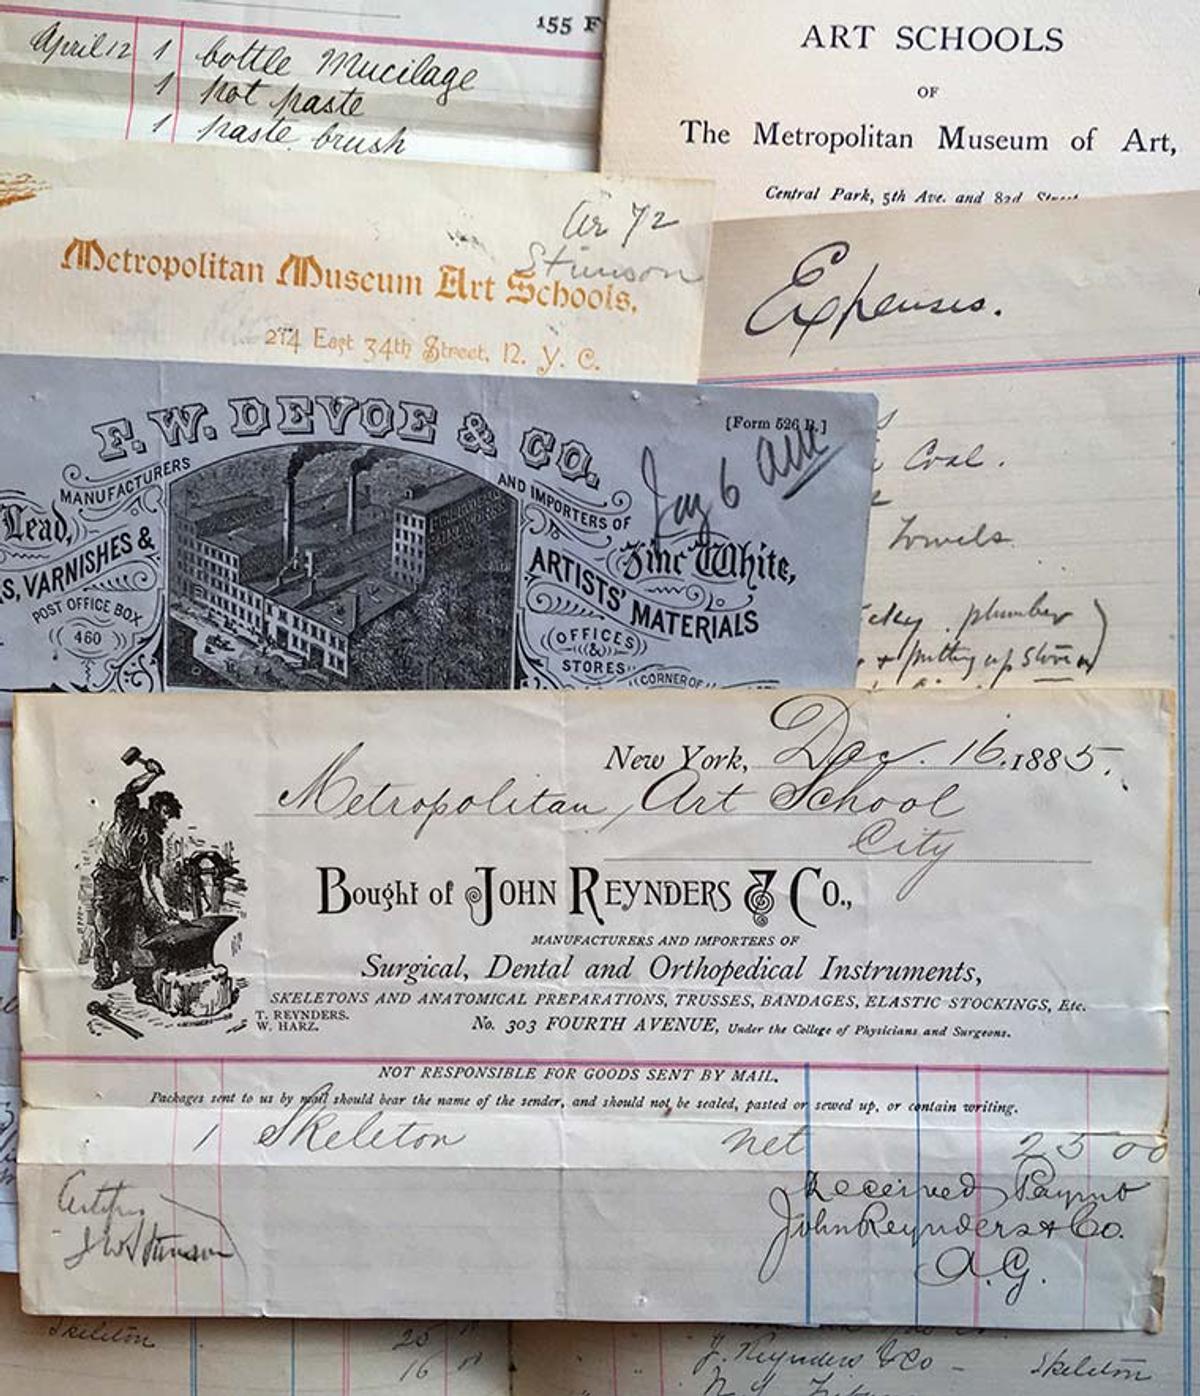 155 F
April 12 1 bottle Mucilage
1 pot paste
1 paste brush
ART SCHOOLS
OF
The Metropolitan Museum of Art,
Central Park, 5th Ave. and 82d Street
72
Stimson
Metropolitan Museum Art Schools,
214 East 34th Street, N. Y. C.
Expenses.
Coal.
Towels.
plumber
+ putting up Stove
F. W. DEVOE & CO.
[Form 526 B.]
MANUFACTURERS
AND IMPORTERS OF
Lead,
Zinc White,
S, VARNISHES &
ARTISTS' MATERIALS
POST OFFICE BOX
460
OFFICES
&
STORES
CORNER OF
New York, Dec. 16. 1885.
Metropolitan Art School
City
Bought of JOHN REYNDERS & CO.,
MANUFACTURERS AND IMPORTERS OF
Surgical, Dental and Orthopedical Instruments,
SKELETONS AND ANATOMICAL PREPARATIONS, TRUSSES, BANDAGES, ELASTIC STOCKINGS, Etc.
T. REYNDERS.
W. HARZ.
No. 303 FOURTH AVENUE, Under the College of Physicians and Surgeons.
NOT RESPONSIBLE FOR GOODS SENT BY MAIL.
Packages sent to us by mail should bear the name of the sender, and should not be sealed, pasted or sewed up, or contain writing.
1 Skeleton net 25 00
Received Paymt
John Reynders & Co.
A.G.
J W Stimson
Skeleton 25
16
J. Reynders & Co - Skeleton